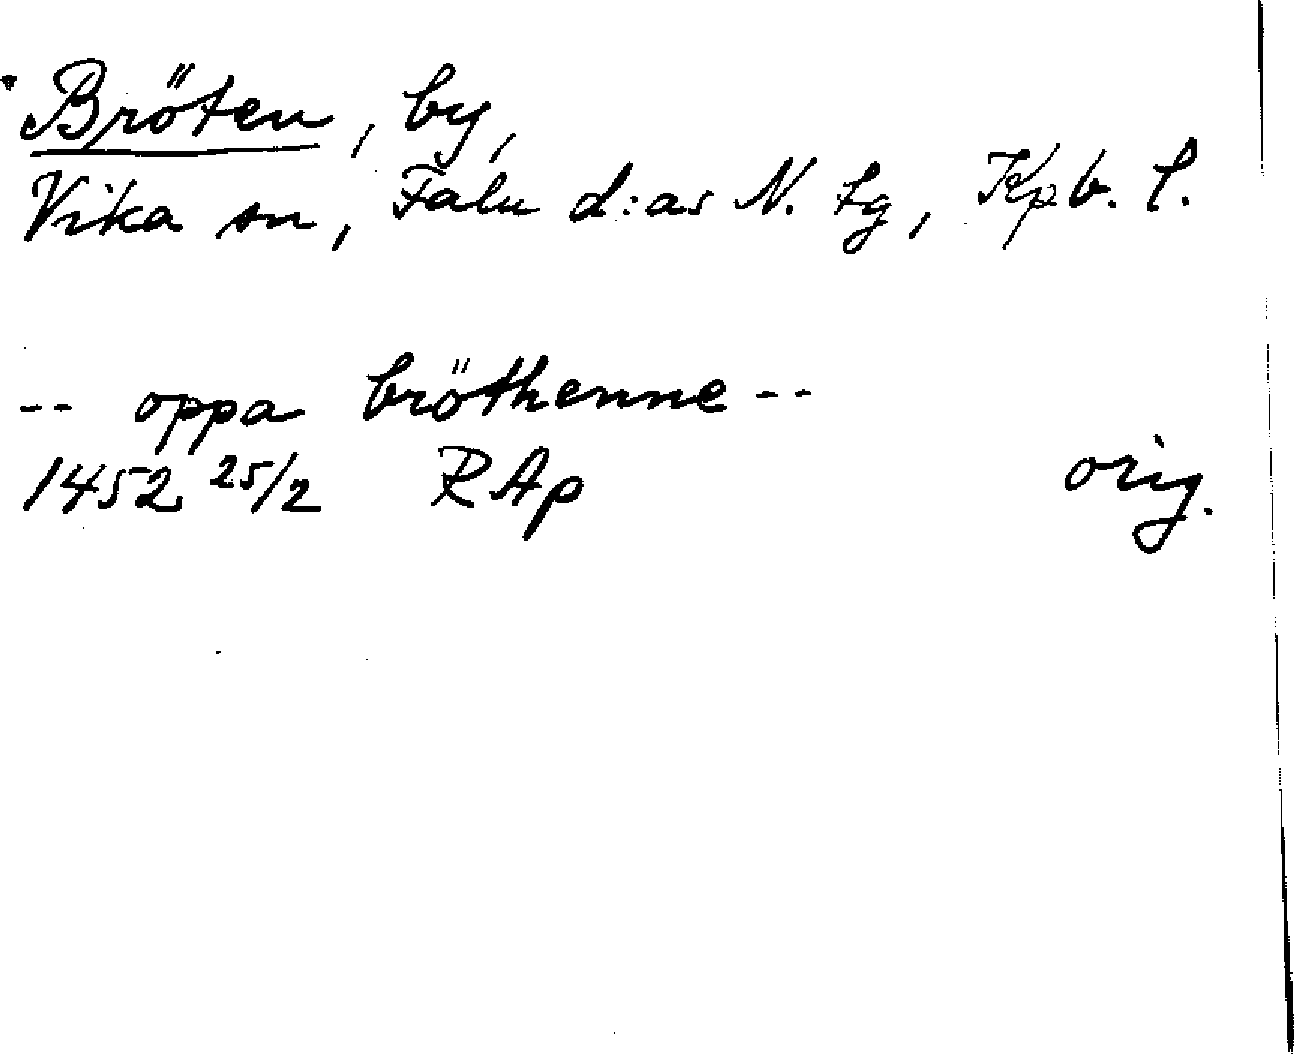 Bröten, by,
Vika sn, Falu d:as N. tg, Kpb. l.
-- oppa bröthenne --
1452 25/2 RAp orig.